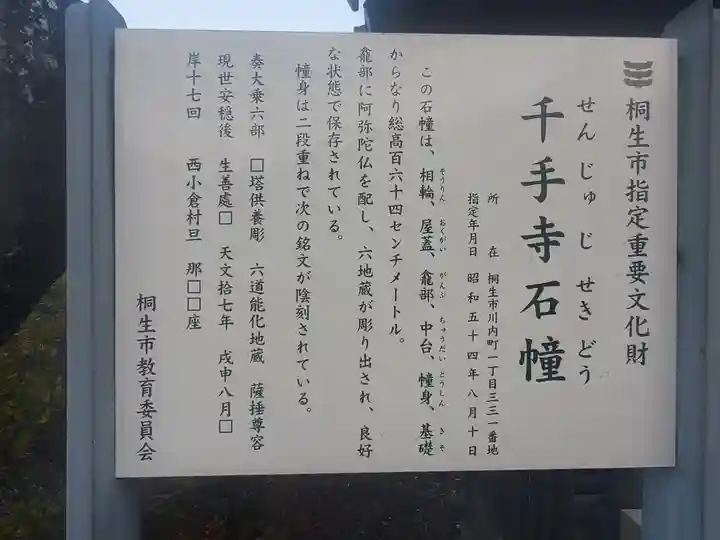 桐生市指定重要文化財
せんじゅじせきどう
千手寺石幢
所在 桐生市川内町一丁目三三一番地
指定年月日 昭和五十四年八月十日
この石幢は、相輪、屋蓋、龕部、中台、幢身、基礎
そうりん おくがい がんぶ ちゅうだい とうしん きそ
からなり総高百六十四センチメートル。
龕部に阿弥陀仏を配し、六地蔵が彫り出され、良好
な状態で保存されている。
幢身は二段重ねで次の銘文が陰刻されている。
奏大乗六部 □塔供養彫 六道能化地蔵 薩捶尊容
現世安穏後 生善處□ 天文拾七年 戊申八月□
岸十七回 西小倉村旦 那□□座
桐生市教育委員会